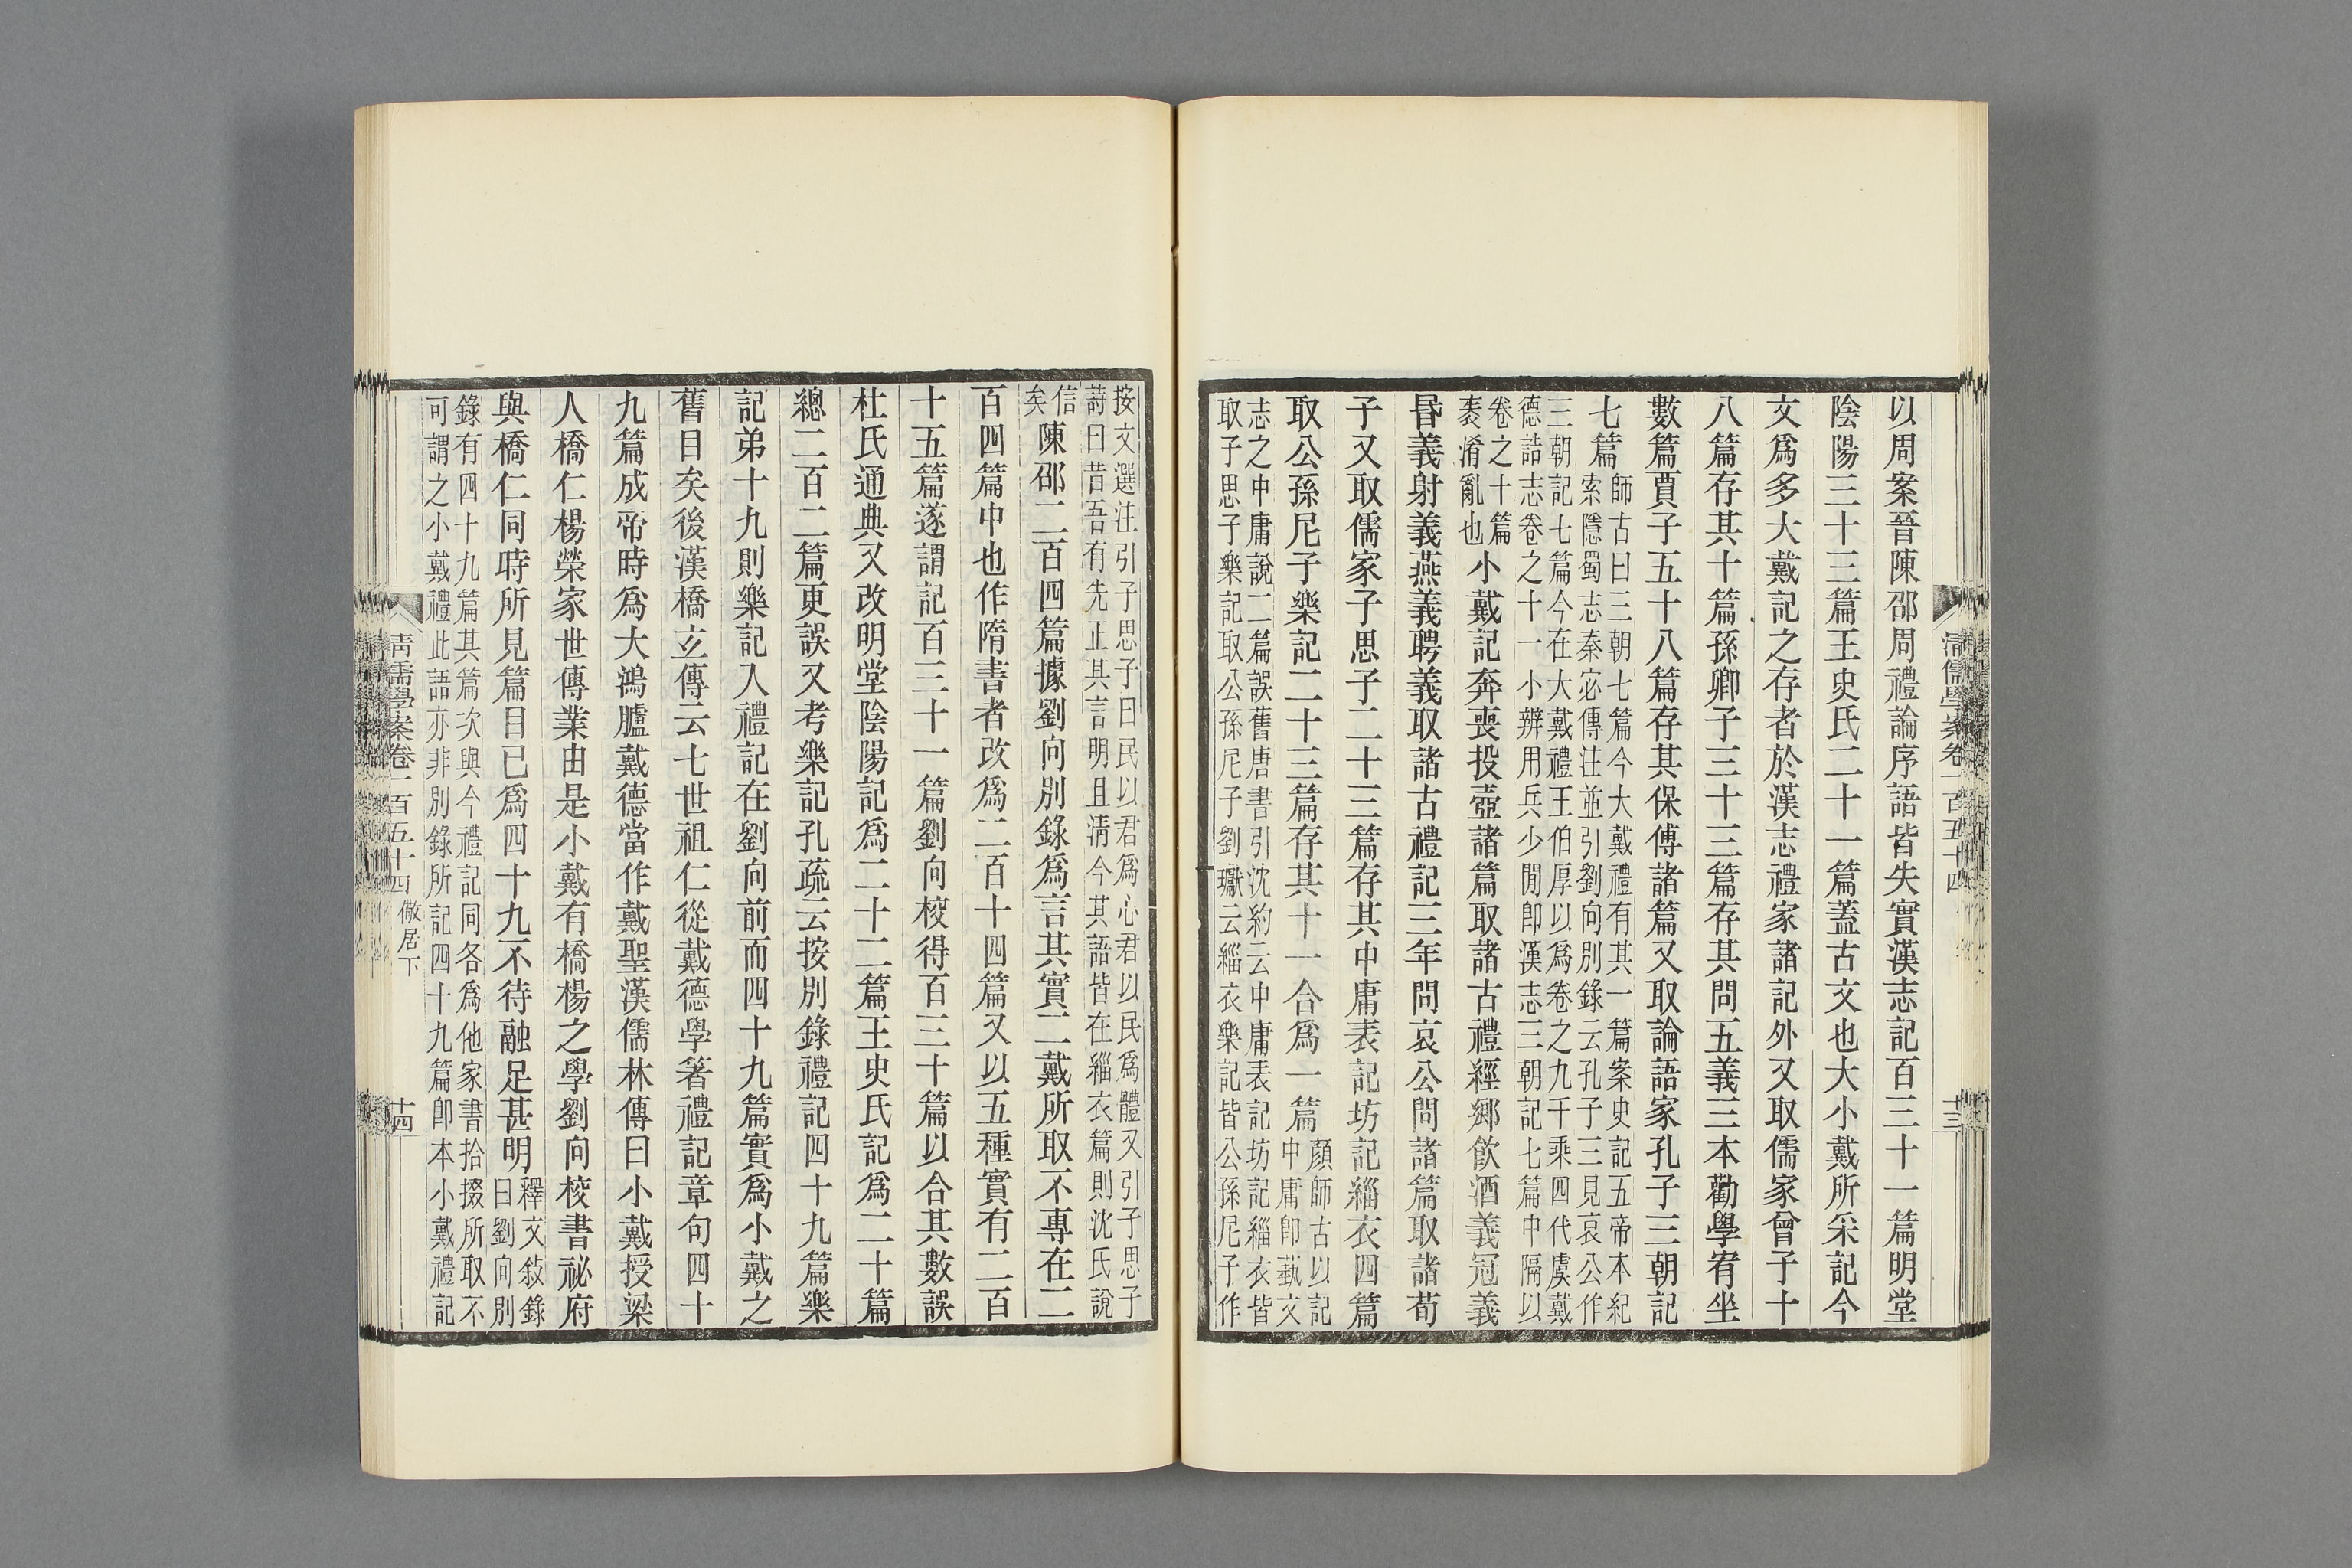 以周案晉陳邵周禮論序語皆失實漢志記百三十一篇明堂
陰陽三十三篇王史氏二十一篇蓋古文也大小戴所采記今
文爲多大戴記之存者於漢志禮家諸記外又取儒家曾子十
八篇存其十篇孫卿子三十三篇存其問五義三本勸學宥坐
數篇賈子五十八篇存其保傅諸篇又取論語家孔子三朝記
七篇師古曰三朝七篇今大戴禮有其一篇案史記五帝本紀
索隱蜀志秦宓傳注並引劉向別錄云孔子三見哀公作
三朝記七篇今在大戴禮王伯厚以爲卷之九千乘四代虞戴
德誥志卷之十一小辨用兵少閒卽漢志三朝記七篇中隔以
卷之十篇
袤淆亂也小戴記奔喪投壺諸篇取諸古禮經鄉飲酒義冠義
昬義射義燕義聘義取諸古禮記三年問哀公問諸篇取諸荀
子又取儒家子思子二十三篇存其中庸表記坊記緇衣四篇
取公孫尼子樂記二十三篇存其十一合爲一篇顏師古以記
中庸卽藝文
志之中庸說二篇誤舊唐書引沈約云中庸表記坊記緇衣皆
取子思子樂記取公孫尼子劉瓛云緇衣樂記皆公孫尼子作
清儒學案卷一百五十四
十三
按文選注引子思子曰民以君爲心君以民爲體又引子思子
詩曰昔吾有先正其言明且清今其語皆在緇衣篇則沈氏說
信
矣陳邵二百四篇據劉向別錄爲言其實二戴所取不專在二
百四篇中也作隋書者改爲二百十四篇又以五種實有二百
十五篇遂謂記百三十一篇劉向校得百三十篇以合其數誤
杜氏通典又改明堂陰陽記爲二十二篇王史氏記爲二十篇
總二百二篇更誤又考樂記孔疏云按別錄禮記四十九篇樂
記弟十九則樂記入禮記在劉向前而四十九篇實爲小戴之
舊目矣後漢橋玄傳云七世祖仁從戴德學著禮記章句四十
九篇成帝時爲大鴻臚戴德當作戴聖漢儒林傳曰小戴授梁
人橋仁楊榮家世傳業由是小戴有橋楊之學劉向校書祕府
與橋仁同時所見篇目已爲四十九不待融足甚明釋文敍錄
曰劉向別
錄有四十九篇其篇次與今禮記同各爲他家書拾掇所取不
可謂之小戴禮此語亦非別錄所記四十九篇卽本小戴禮記
清儒學案卷一百五十四 儆居下
十四